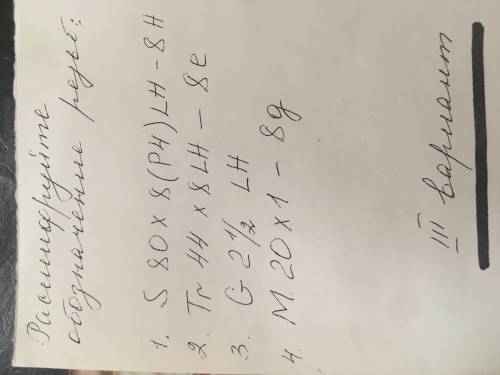 Расшифруйте
обозначение резьб:
1. S 80 x 8 (P4) LH - 8H
2. Tr 44 x 8 LH - 8e
3. G 2 1/2 LH
4. M 20 x 1 - 8g
III вариант